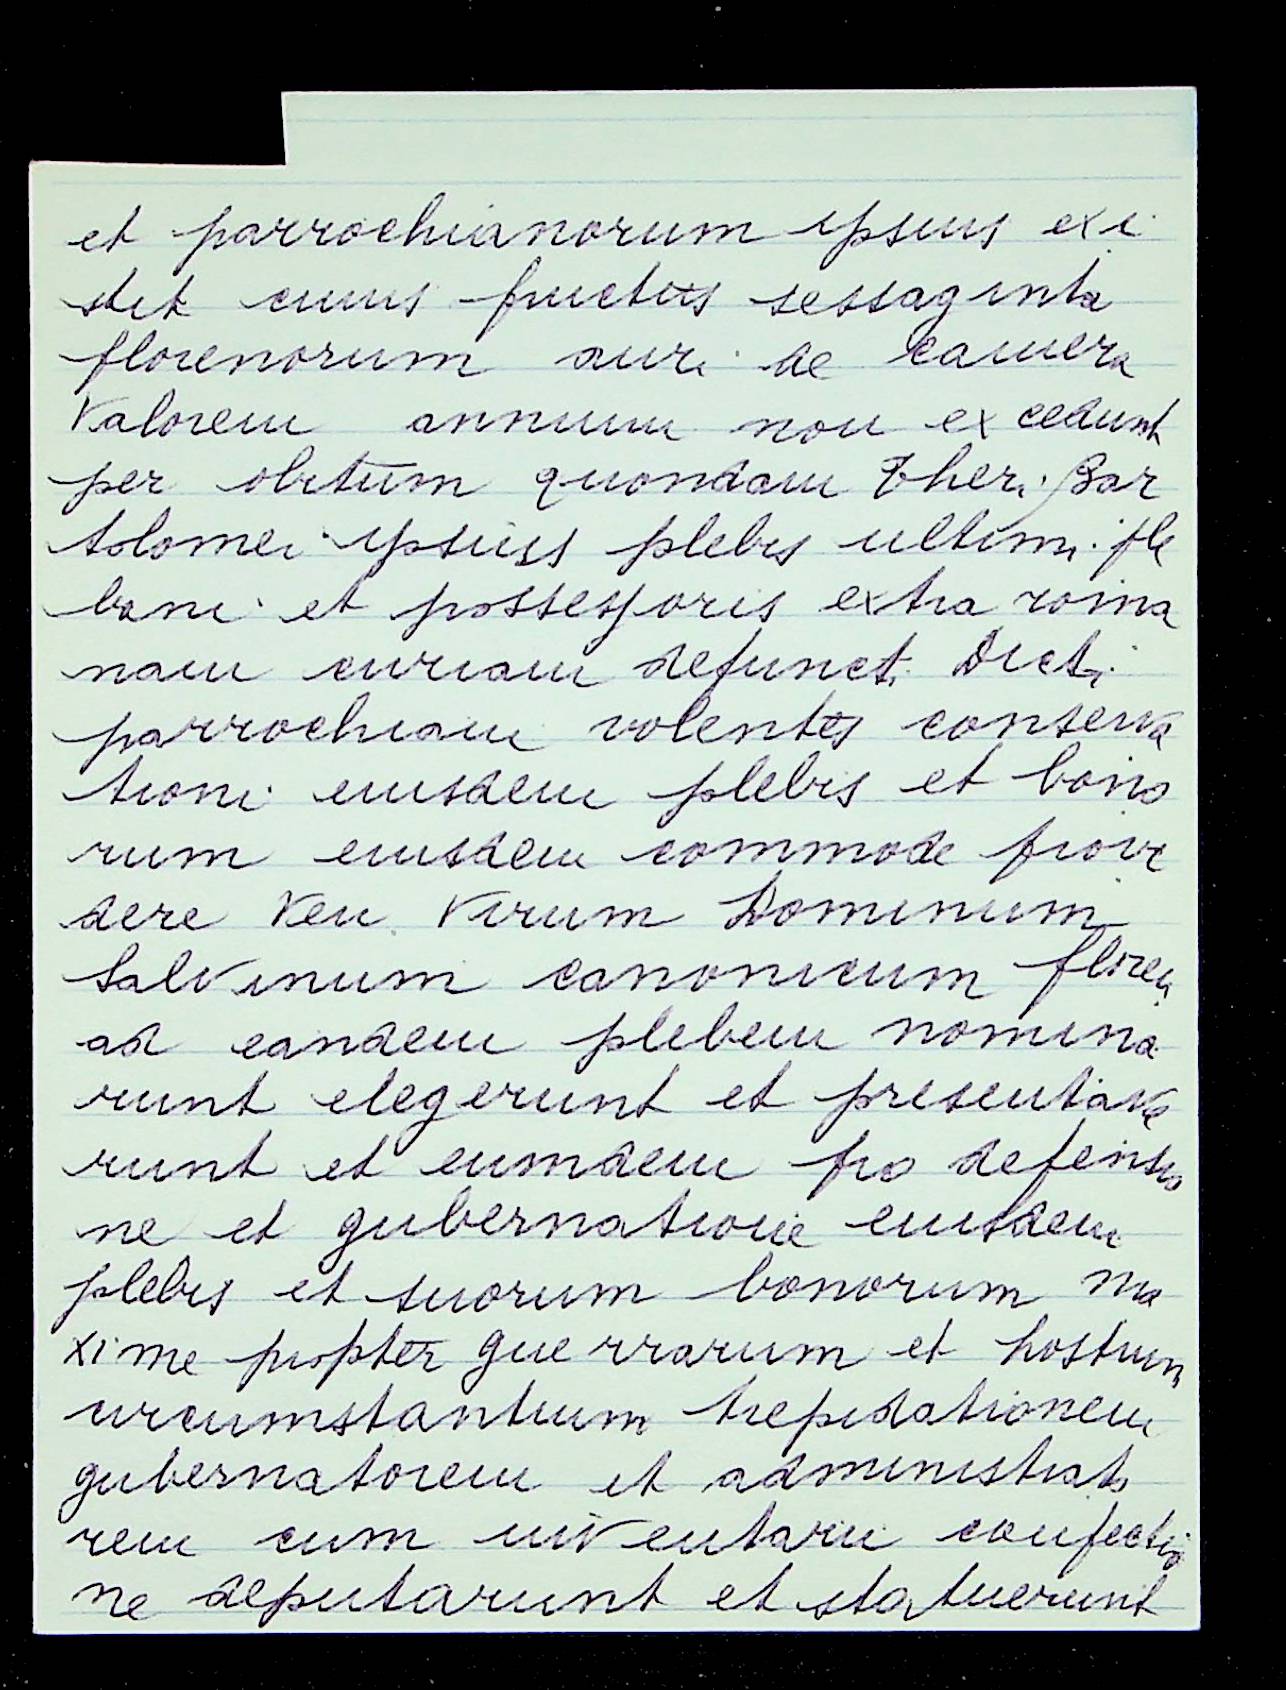 et parrochianorum ipsius exi
stit cuius fructus sessaginta
florenorum auri de camera
valorem annuum non excedunt
per obitum quondam Bar
tolomei ipsius plebis ultimi ple
bani et possessoris extra roma
nam curiam defuncti Dicti
parrochiani volentes conserva
tioni eiusdem plebis et bono
rum eiusdem commode provi
dere Ven. Virum Dominum
Salvinum canonicum floren
ad eandem plebem nomina
runt elegerunt et presentave
runt et eumdem pro defensio
ne et gubernatione eiusdem
plebis et suorum bonorum ma
xime propter guerrarum et hostium
circumstantium trepidationem
gubernatorem et administrato
rem cum inventarii confectio
ne deputarunt et statuerunt